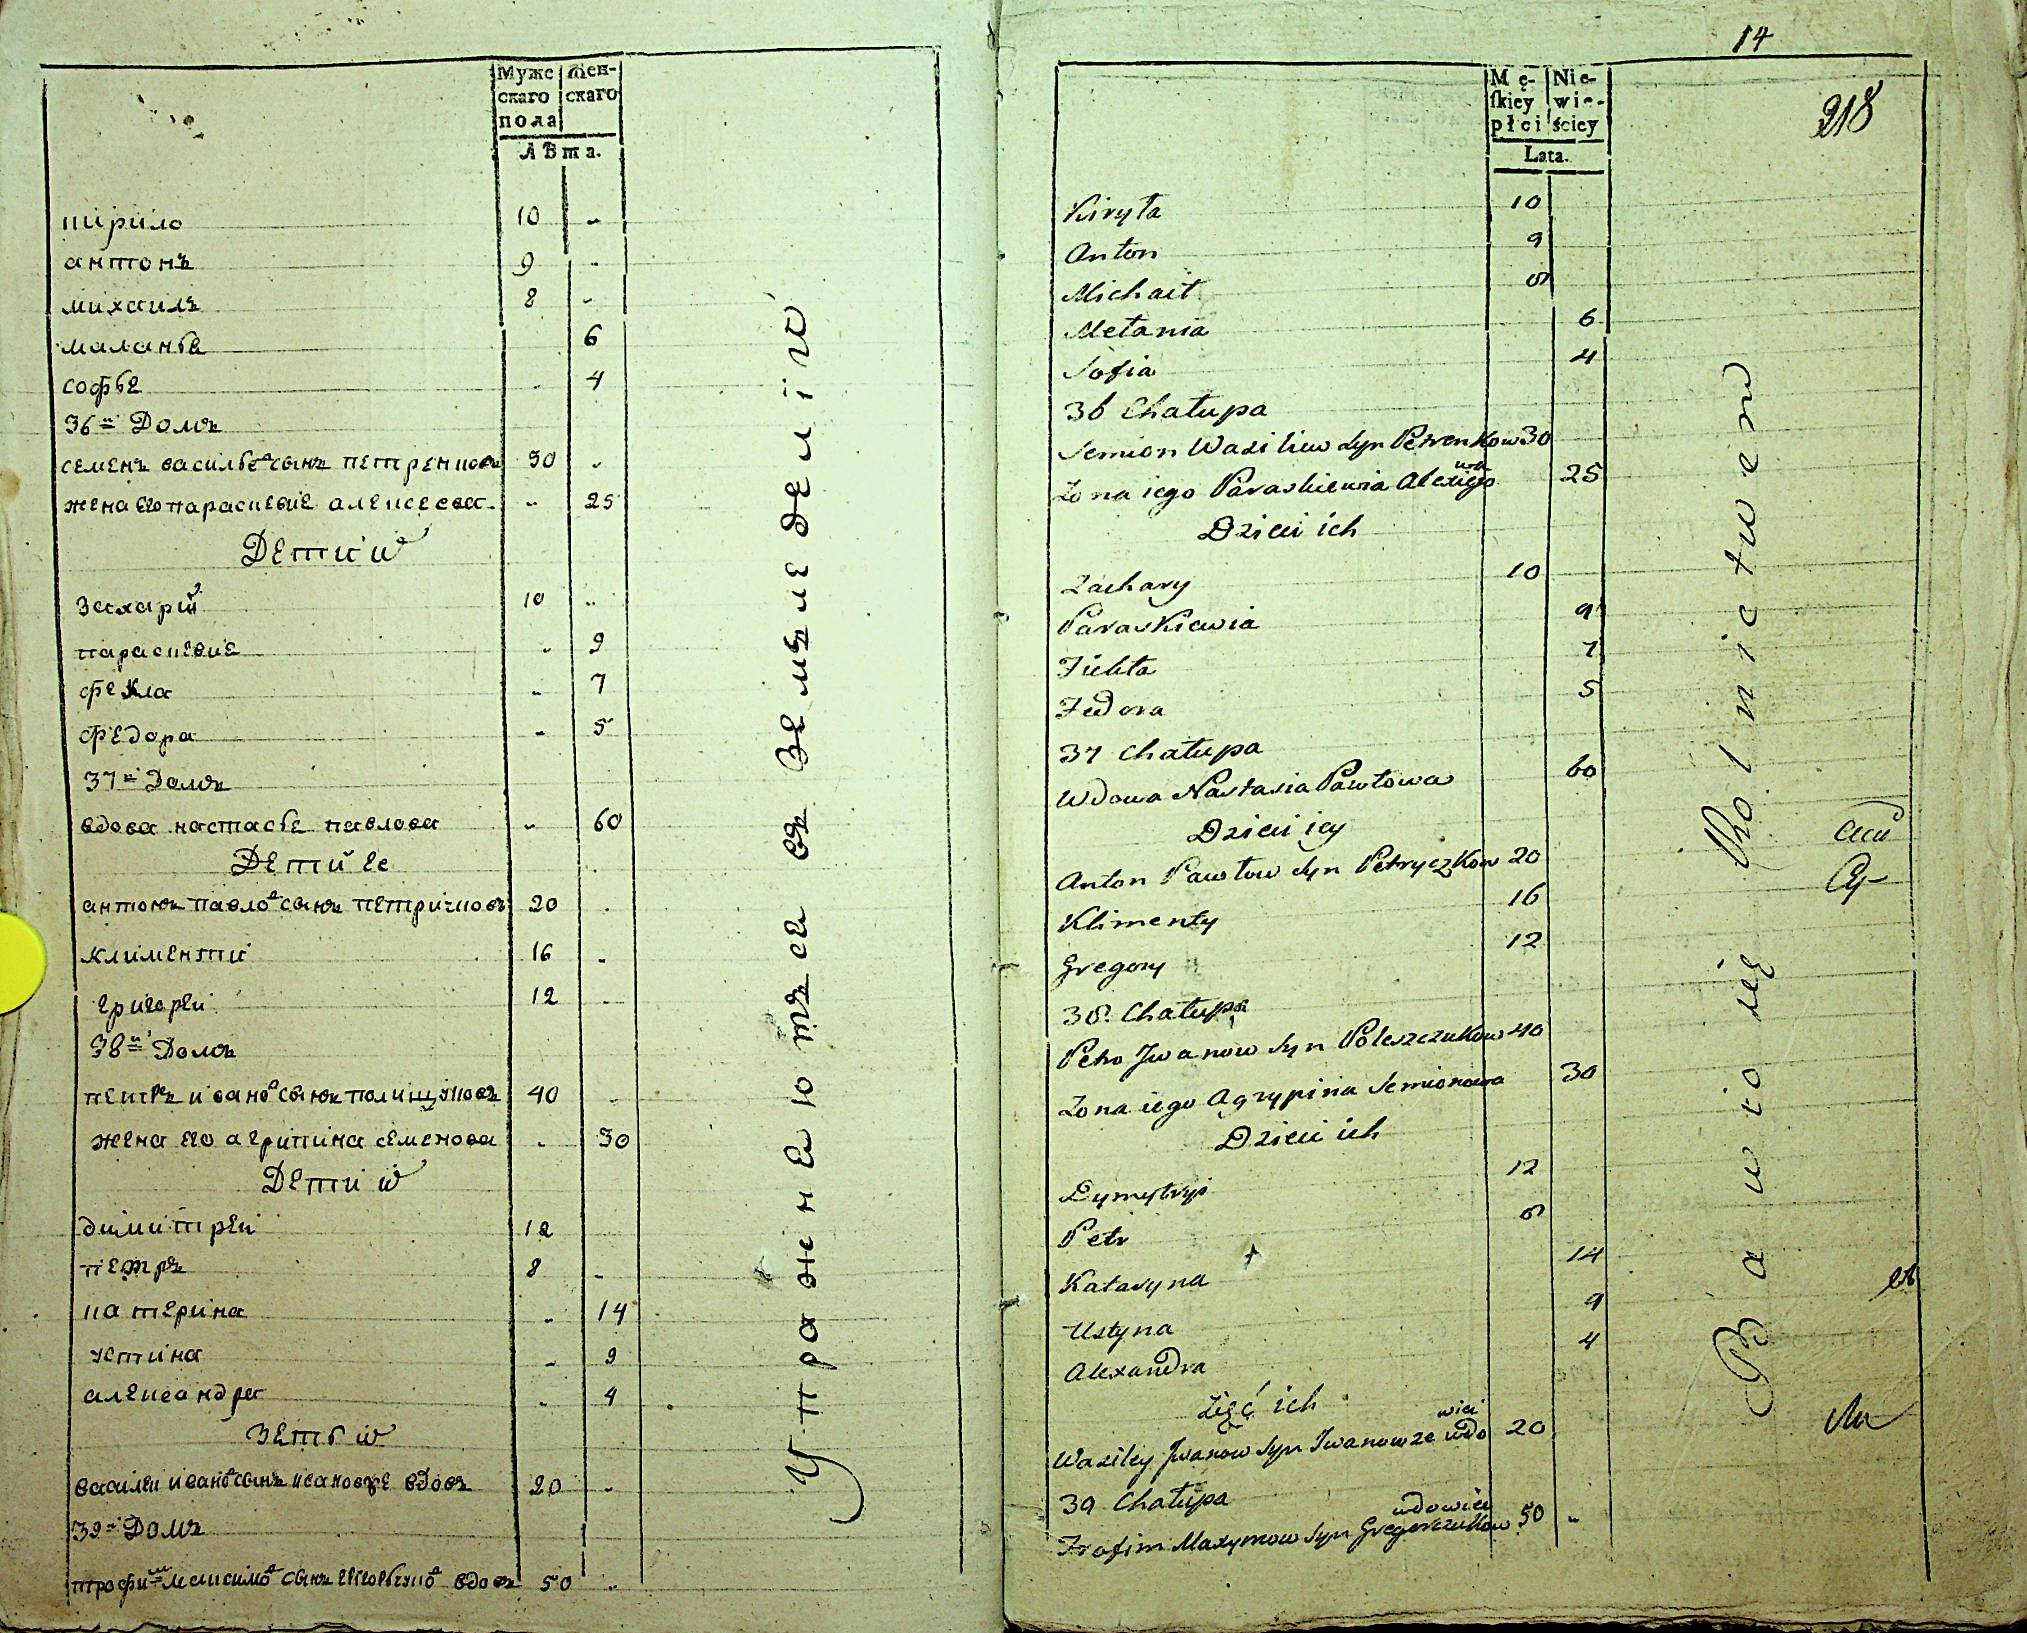 Муже
скаго
пола
Жен-
скаго
Лѣта.
кирило 10 „
антонъ 9 „
михаилъ 8 „
маланья 6
софья 4
36й Домъ
семенъ васильевъ сынъ петренковъ 30 „
жена его параскевия алексеева „ 25
Дети ихъ
захарий 10 „
параскевия „ 9
фекла „ 7
федора „ 5
37й Домъ
вдова настасья павлова „ 60
Дети ее
антонъ павловъ сынъ петричковъ 20
климентий 16 „
григорей 12
38й Домъ
петръ ивановъ сынъ полищуковъ 40
жена его агрипина семенова „ 30
Дети ихъ
димитрей 12
петръ 8 „
катерина „ 14
устина „ 9
александра „ 4
Зеть ихъ
василей ивановъ сынъ ивановъ же вдовъ 20 „
39й Домъ
трофимъ максимовъ сынъ вдовъ 50 „
Упражняются въ земледелiи
14
218
Mę-
skiey
płci
Nie-
wie-
ściey
Lata.
Kiryła 10
Anton 9
Michaił 8
Mełania 6
Sofia 4
36 Chałupa
Semion Wasiliew syn Petrenkow 30
Żona iego Paraskiewia Alexiejewa 25
Dzieci ich
Zachary 10
Paraskiewia 9
Fiekła 7
Fedora 5
37 Chałupa
Wdowa Nastasia Pawłowa 60
Dzieci iey
Anton Pawłow syn Petryczkow 20
Klimenty 16
Gregory 12
38. Chałupa
Petro Jwanow syn Poleszczukow 40
Żona iego Agrypina Semionowa 30
Dzieci ich
Dymytryi 12
Petr 8
Kataryna 14
Ustyna 9
Alexandra 4
Zięć ich
Wasiley Jwanow syn Iwanow że wdowiec 20
39 Chałupa
Trofim Maxymow syn Gregorczukow wdowiec 50 „
Bawio się Rolnictwem